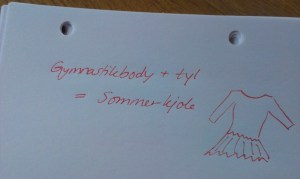 Gymnastikbody + tyl
= Sommerkjole